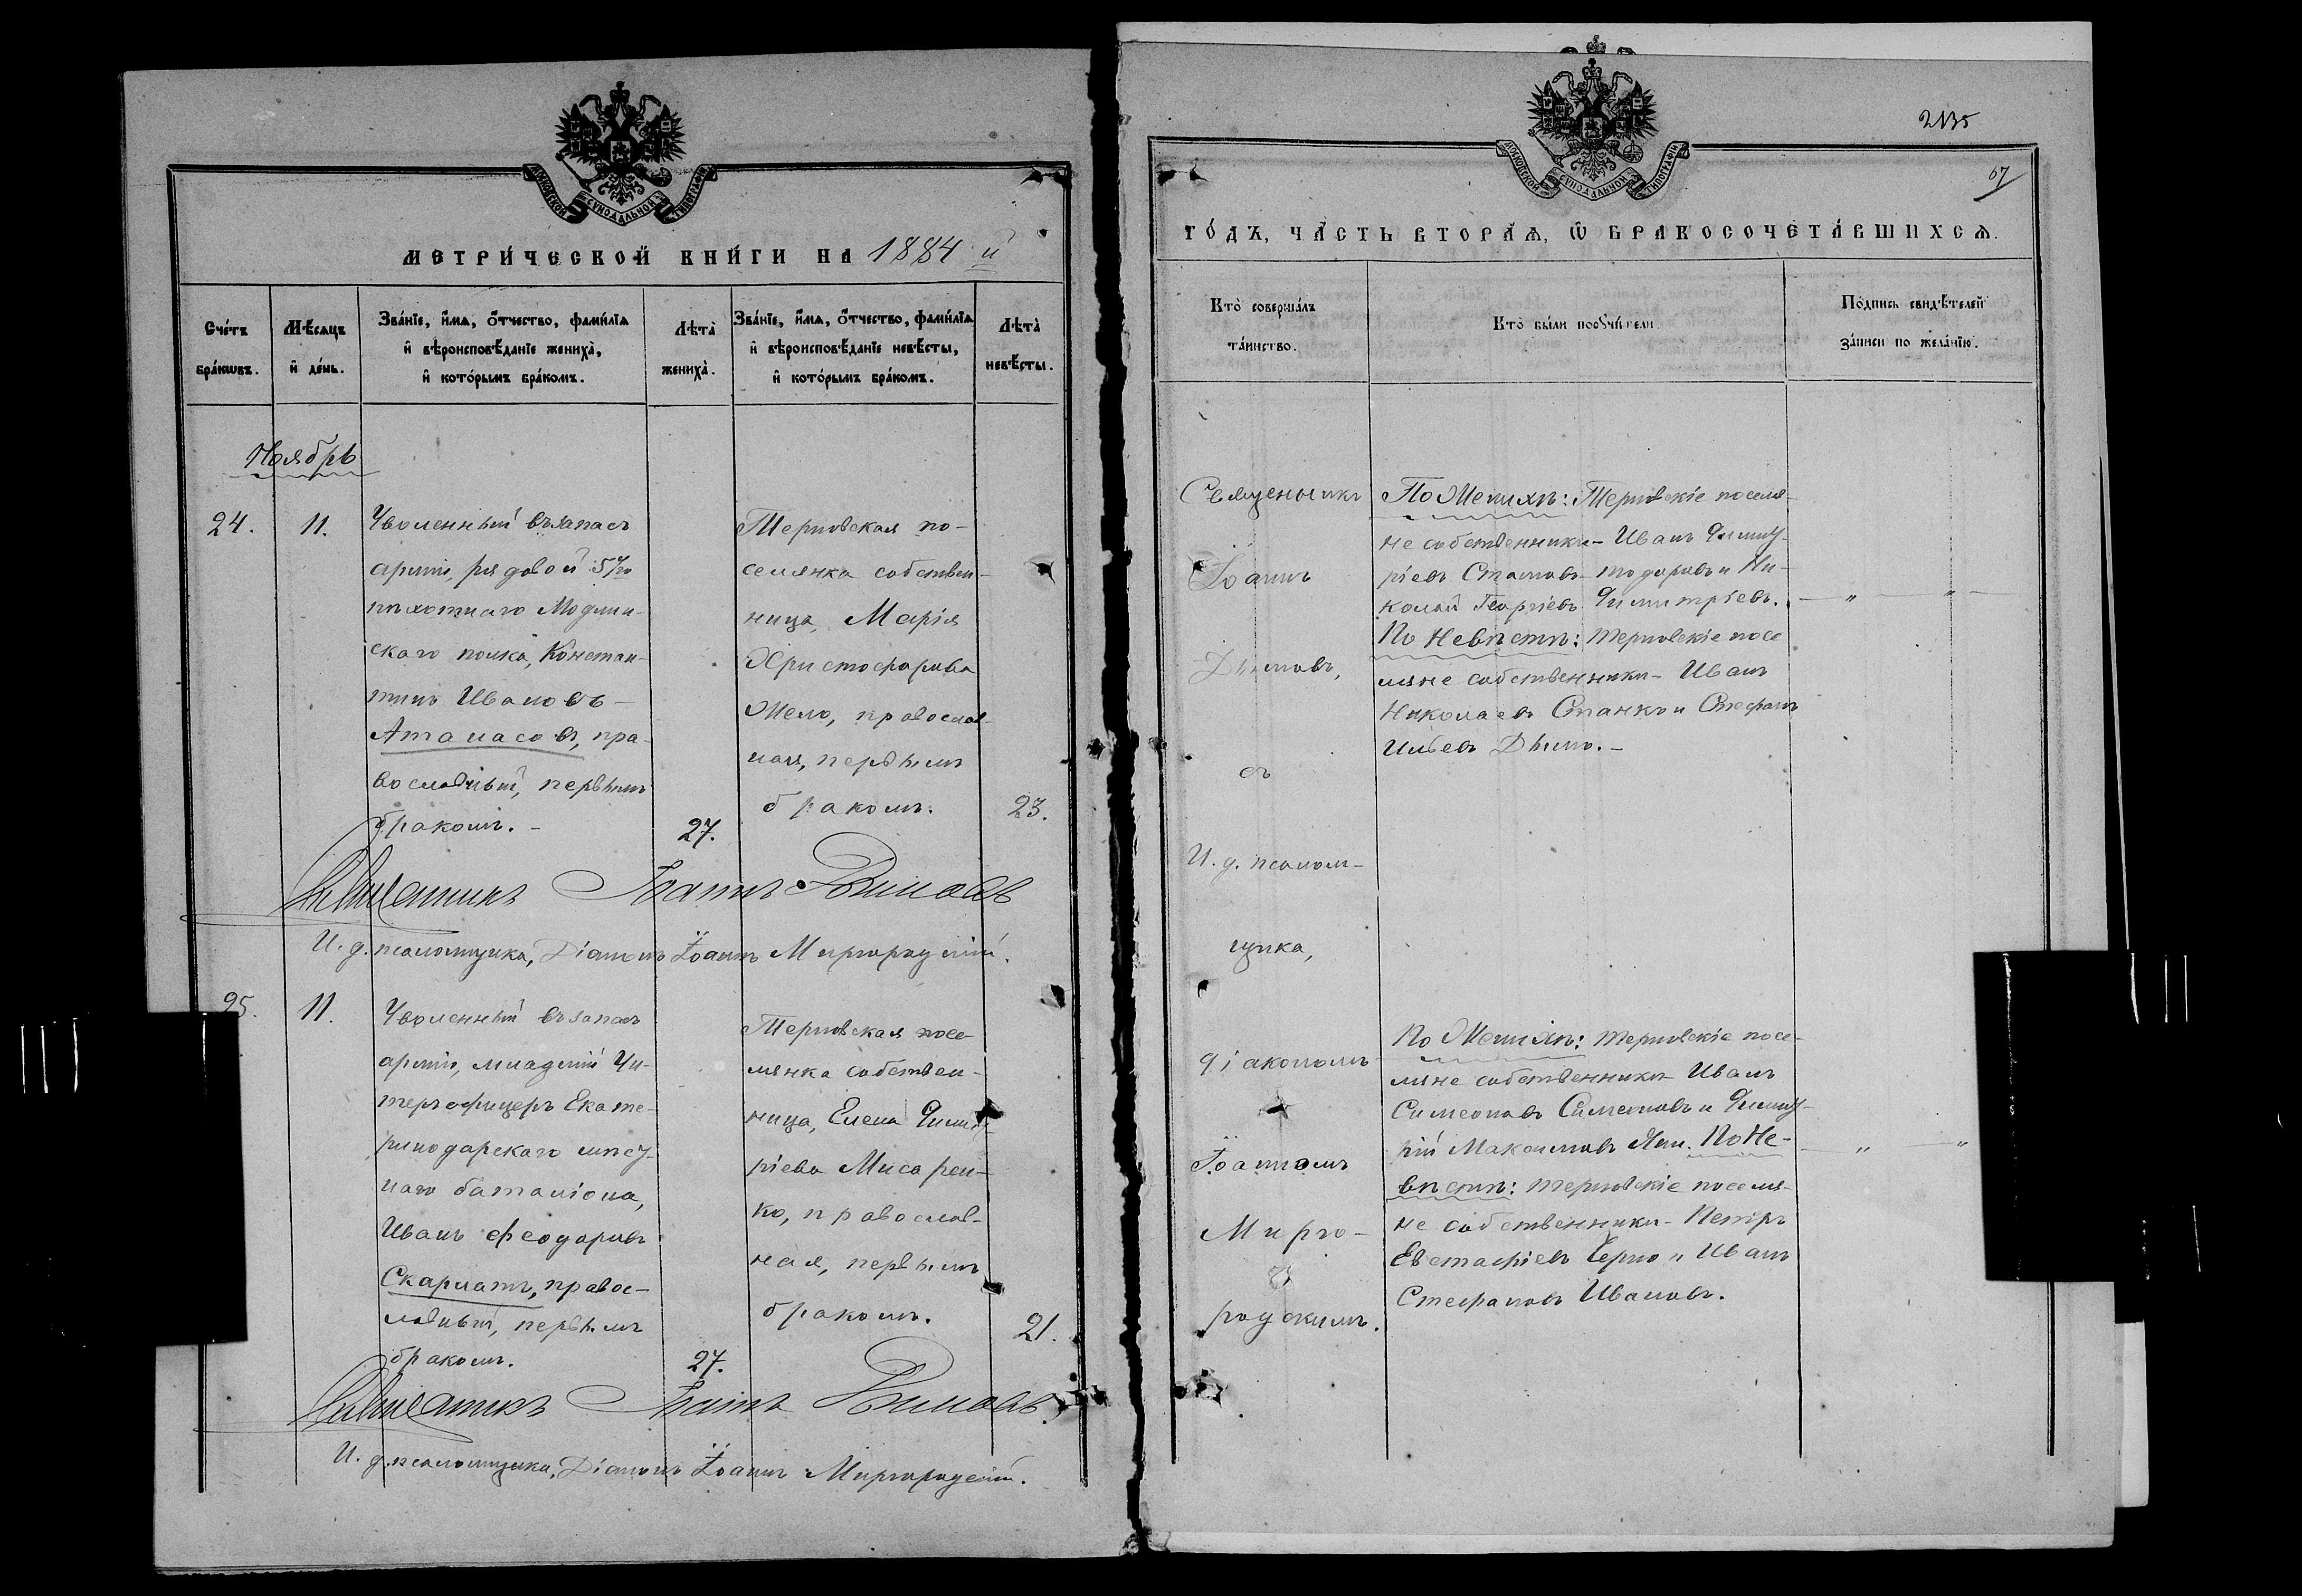 МОСКОВСКОЙ СѴНОДАЛЬНОЙ ТИПОГРАФІИ
МЕТРИ́ЧЕСКОЙ КНИ́ГИ НА 1884 й
Сче́тъ бра́кѡвъ.
Мѣ́сяцъ и҆ де́нь.
Зва́нїе, и҆́мѧ, ѻ҆́тчество, фами́лїѧ и҆ вѣроисповѣ́данїе жениха̀, и҆ кото́рымъ бра́комъ.
Лѣта̀ жениха̀.
Зва́нїе, и҆́мѧ, ѻ҆́тчество, фами́лїѧ и҆ вѣроисповѣ́данїе невѣ́сты, и҆ кото́рымъ бра́комъ.
Лѣта̀ невѣ́сты.
Ноябрь
24.
11.
Уволенный въ запасъ
арміи, рядовой 57го
пѣхотнаго Модлин-
скаго полка, Констан-
тинъ Ивановъ –
Атанасовъ, пра-
вославный, первымъ
бракомъ. –
27.
Терновская по-
селянка собствен-
ница, Марія
Христофорова
Мело, православ-
ная, первымъ
бракомъ.
23.
Священникъ Іоаннъ Дымовъ
И. д. псаломщика, Діаконъ Іоаннъ Миргородскій.
25.
11.
Уволенный въ запасъ
арміи, младшій Ун-
теръ офицеръ Екате-
ринодарскаго мѣст-
наго баталіона,
Иванъ Феодоровъ
Скарлатъ, правос-
лавный, первымъ
бракомъ.
27.
Терновская посе-
лянка собствен-
ница, Елена Димит-
ріева Мисарен-
ко, православ-
ная, первымъ
бракомъ.
21.
Священникъ Іоаннъ Дымовъ
И. д. псаломщика, Діаконъ Іоаннъ Миргородскій.
2135
67
МОСКОВСКОЙ СѴНОДАЛЬНОЙ ТИПОГРАФІИ
ГО́ДЪ, ЧА́СТЬ ВТОРА́Ѧ, Ѡ҆ БРАКОСОЧЕТА́ВШИХСѦ.
Кто̀ соверша́лъ та́инство.
Кто̀ бы́ли порꙋчи́тели.
По́дпись свидѣ́телей за́писи по жела́нїю.
Священникъ
Іоаннъ
Дымовъ,
съ
И. д. псалом-
щика,
діакономъ
Іоанномъ
Мирго-
родскимъ.
По Женихѣ: Терновскіе поселя-
не собственники – Иванъ Димит-
ріевъ Стамовъ-Тодоровъ и Ни-
колай Георгіевъ Димитріевъ.
По Невѣстѣ: Терновскіе посе
ляне собственники – Иванъ
Николаевъ Станкъ и Стефанъ
Ильевъ Дымъ. –
— „ — „ —
По Женихѣ: Терновскіе посе-
ляне собственники Иванъ
Симеоновъ Симеоновъ и Димит-
рій Максимовъ Яни. По Не-
вѣстѣ: Терновскіе поселя-
не собственники – Петръ
Евстафіевъ Черно и Иванъ
Стефановъ Ивановъ.
— „ — „